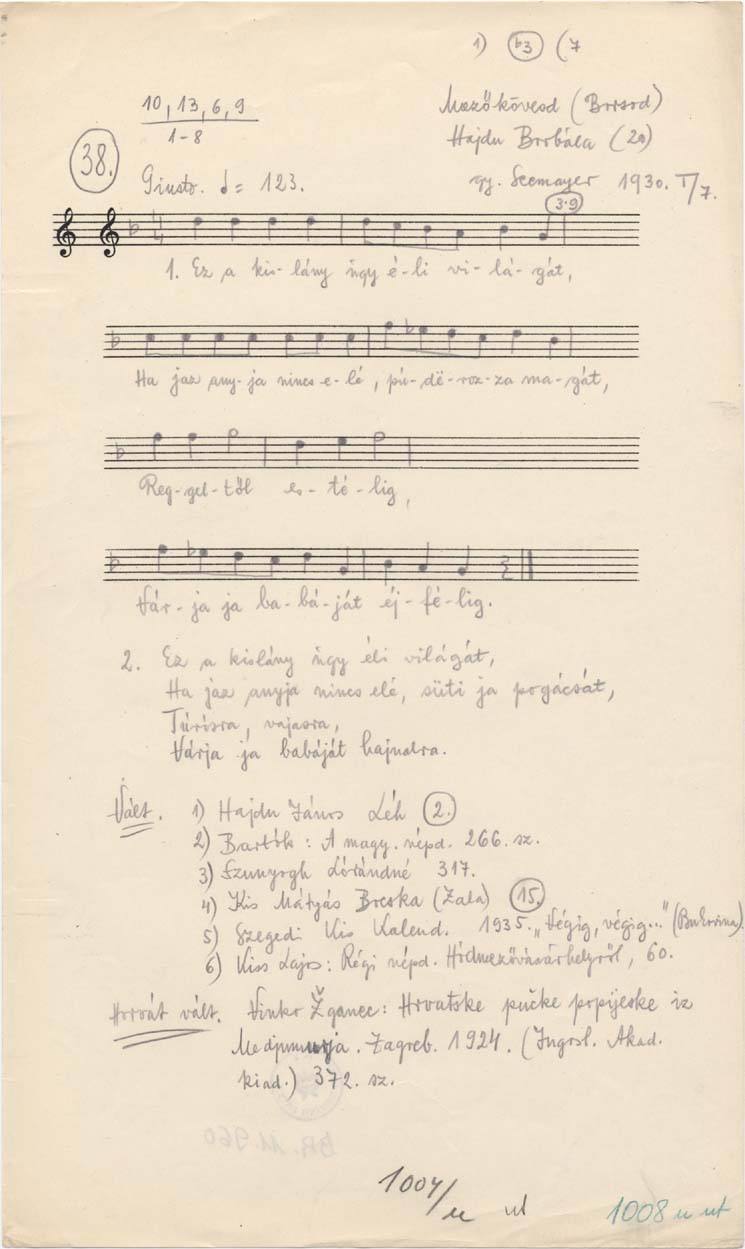 1) (♭3) (7
10, 13, 6, 9
1-8
Mezőkövesd (Borsod)
Hajdu Borbála (20)
38.
Giusto. = 123.
gy. Seemayer 1930. I/7.
3·9
1. Ez a kis-lány úgy é-li vi-lá-gát,
Ha jaz any-ja nincs e-lé, pú-dë-roz-za ma-gát,
Reg-gel-től es-té-lig,
Vár-ja ja ba-bá-ját éj-fé-lig.
2. Ez a kislány úgy éli világát,
Ha jaz anyja nincs elé, süti ja pogácsát,
Túrósra, vajasra,
Várja ja babáját hajnalra.
Vált. 1) Hajdu János Léh (2.)
2) Bartók: A magy. népd. 266. sz.
3) Szunyogh Lórándné 317.
4) Kis Mátyás Bocska (Zala) (15.)
5) Szegedi Kis Kalend. 1935. „Végig, végig..." (Bukovina)
6) Kiss Lajos: Régi népd. Hódmezővásárhelyről, 60.
Horvát vált. Vinko Žganec: Hrvatske pučke popijeske iz
Medjumurja. Zagreb. 1924. (Jugosl. Akad.
kiad.) 372. sz.
BR. 11.960
1004/u ut
1008 u ut